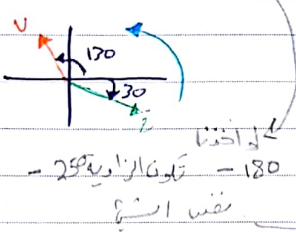 U
130
30
لو أخذنا
180 - تكون الزاوية 250 -
نفس الشيء